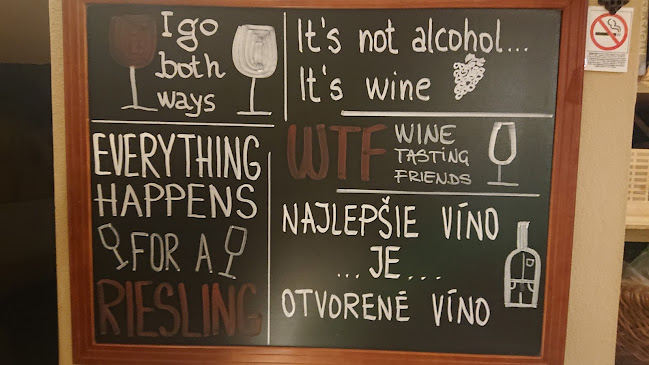 I go
both
ways
It's not alcohol...
It's wine
EVERYTHING
HAPPENS
FOR A
RIESLING
WTF
WINE
TASTING
FRIENDS
NAJLEPŠIE VÍNO
...JE...
OTVORENÉ VÍNO